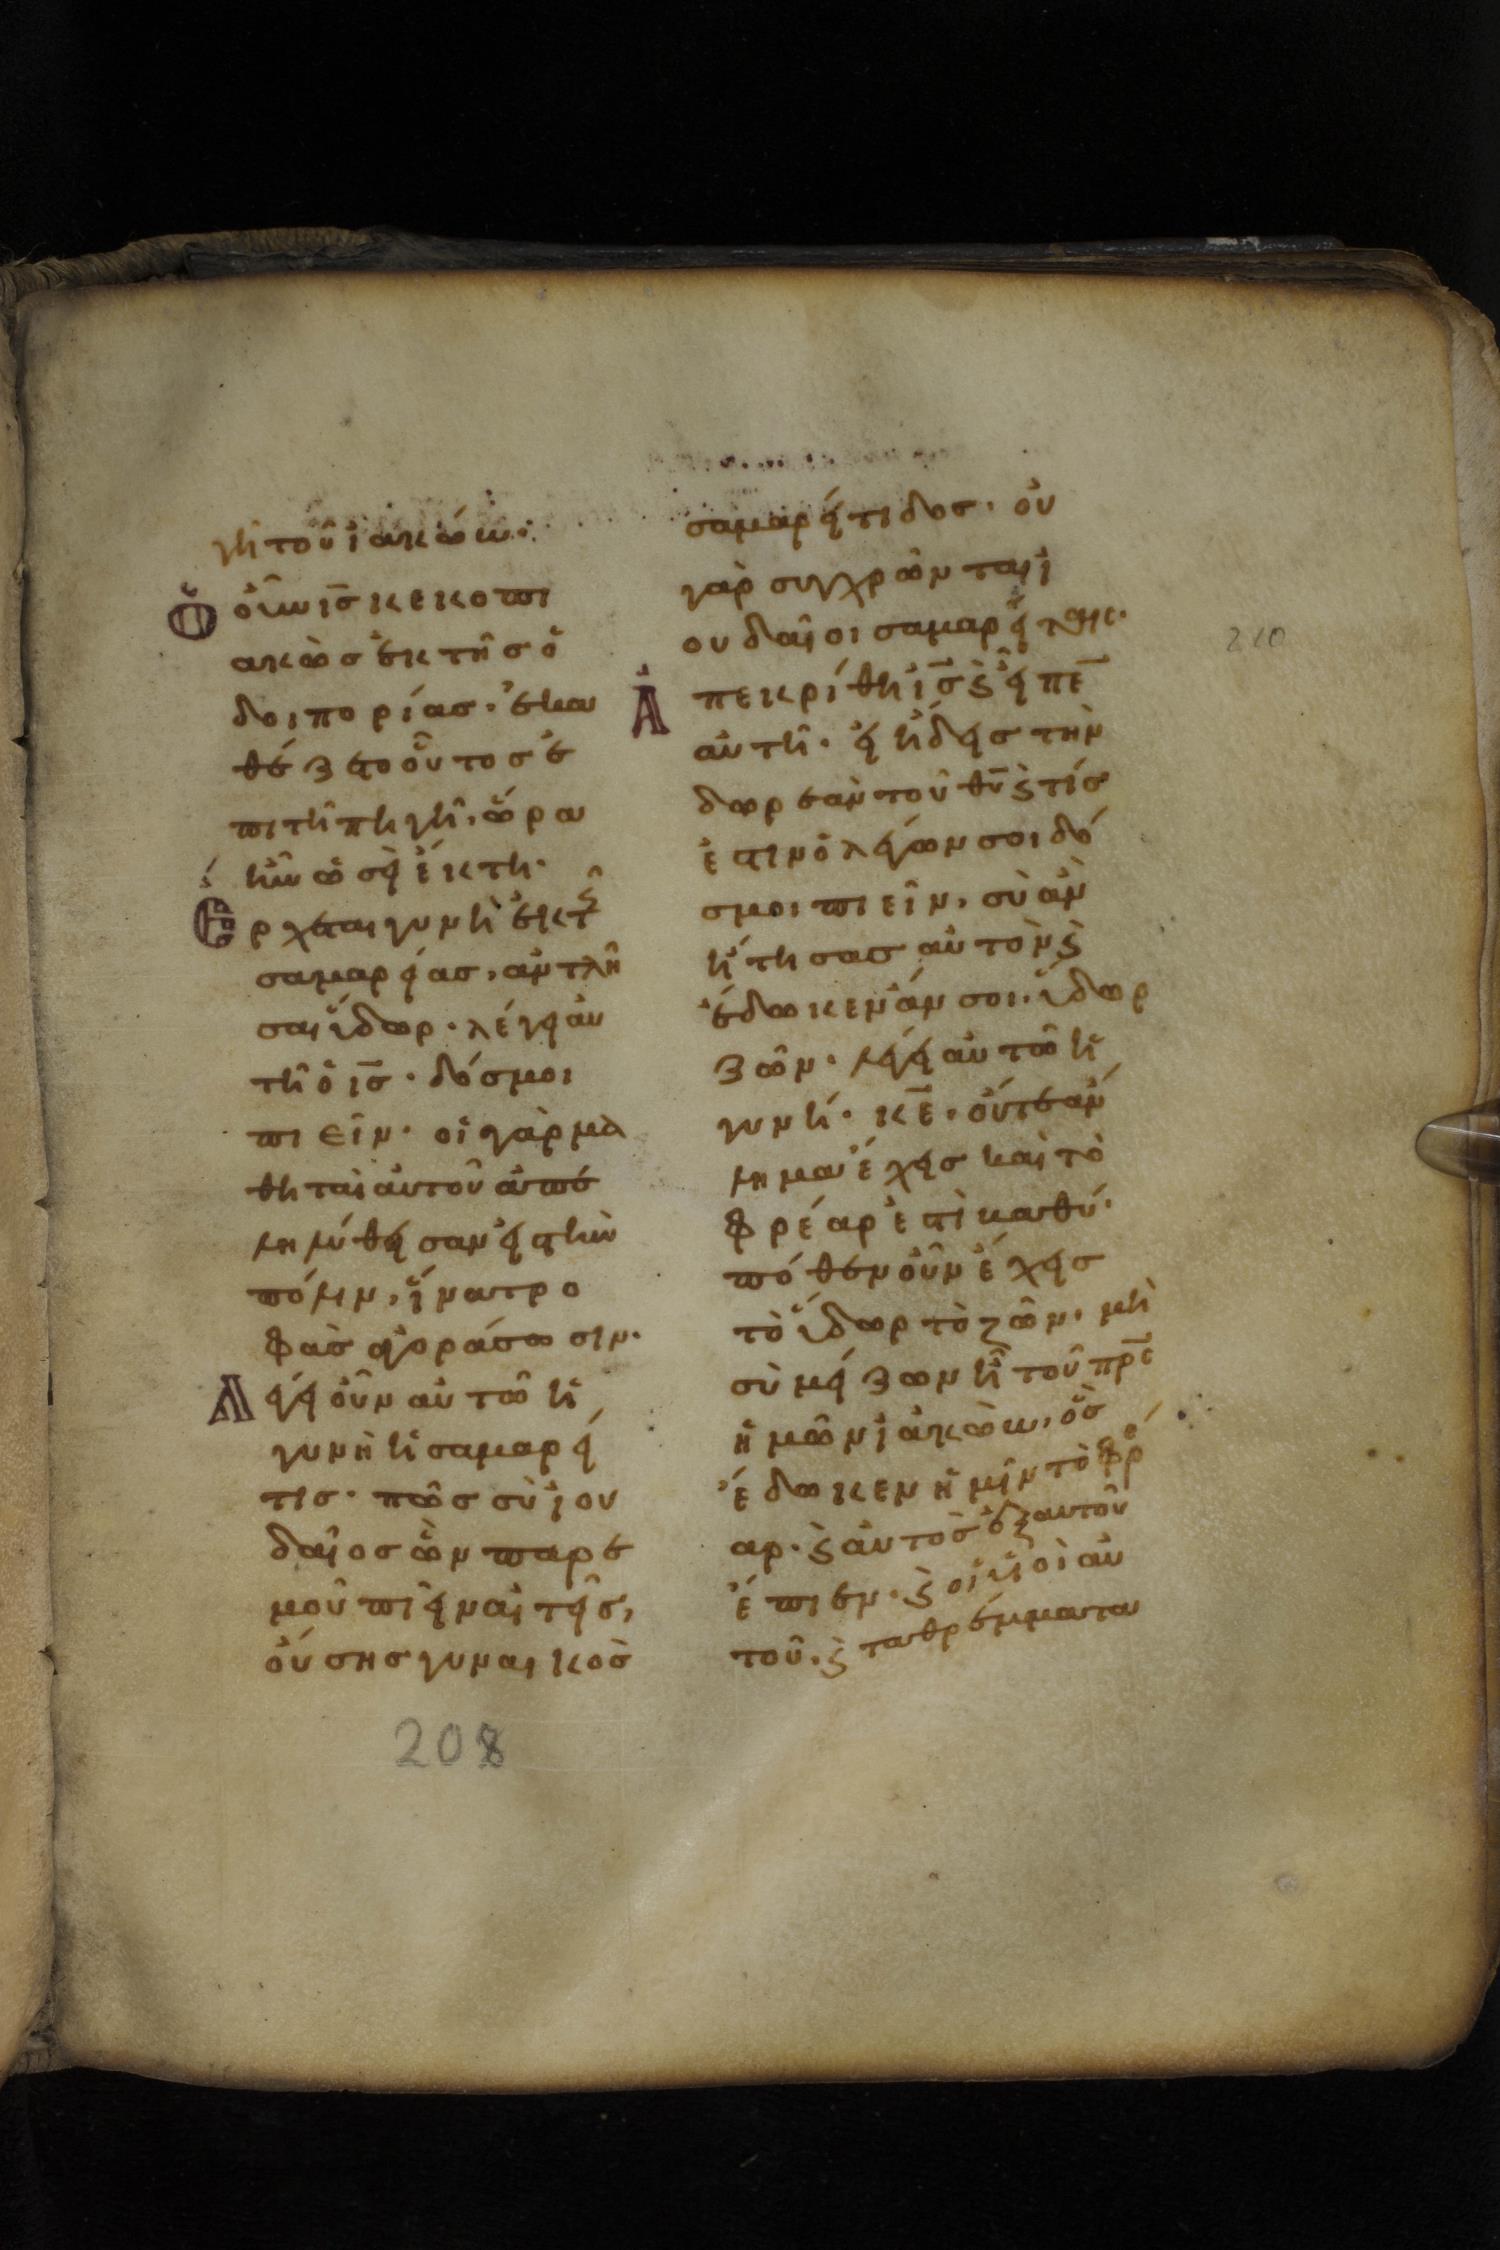 γὴ τοῦ ἰακώβ·
Ὁ οὖν ις̅ κεκοπι
ακὼσ ἐκ τῆσ ὁ
δοιπορίασ· ἐκα
θέζετο οὕτοσ ἐ
πι τῆ πηγῆ, ὥρα
ἦν ὡσεὶ ἕκτη·
Ἔρχεται γυνὴ ἐκ τῆσ
σαμαρείασ, ἀντλῆ
σαι ὕδωρ· λέγει αὐ
τῆ ὁ ισ̅· δόσ μοι
πιεῖν· οἱ γὰρ μα
θηταὶ αὐτοῦ ἀπε
ληλύθεισαν εἰσ τὴν
πόλιν, ἵνα τρο
φὰσ ἀγοράσωσιν·
Λέγει οὖν αὐτῶ ἡ
γυνὴ ἡ σαμαρεί
τισ· πῶσ σὺ ἰου
δαῖοσ ὢν παρ ε
μοῦ πιεῖν αἰτεῖσ,
οὔσησ γυναικὸσ
σαμαρείτιδοσ· οὐ
γὰρ συγχρῶνται ἰ
ουδαῖοι σαμαρείταισ·
Ἀπεκρίθη ισ̅ ϗ εἶπε̅
αὐτῆ· εἰ ἤδεισ τὴν
δωρεὰν τοῦ θυ̅ ϗ τίσ
ἐστιν ὁ λέγων σοι δό
σ μοι πιεῖν, σὺ ἂν
ἤτησασ αὐτὸν ϗ
ἔδωκεν ἄν σοι ὕδωρ
ζῶν· λέγει αὐτῶ ἡ
γυνή· κε̅· οὔτε ἄν
λημα ἔχεισ καὶ τὸ
φρέαρ ἐστὶ βαθύ·
πόθεν οὖν ἔχεισ
τὸ ὕδωρ τὸ ζῶν· μὴ
σὺ μείζων εἶ τοῦ πρ̅σ
ἡμῶν ἰακὼβ, ὃσ
ἔδωκεν ἡμῖν τὸ φρέ
αρ· ϗ αὐτὸσ ἐξ αυτοῦ
ἔπιεν· ϗ οἱ υἱοὶ αὐ
τοῦ, ϗ τα θρέμματα
208
210